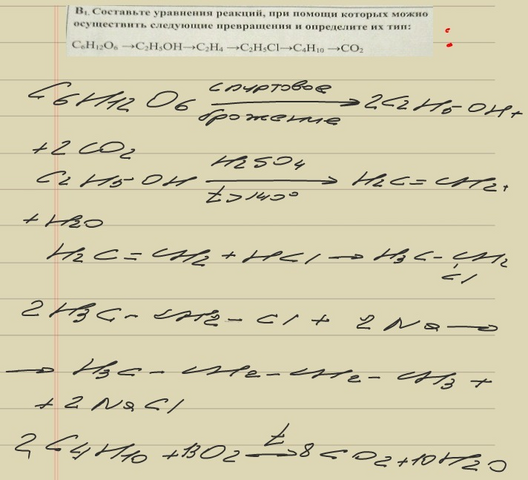 В₁. Составьте уравнения реакций, при помощи которых можно
осуществить следующие превращения и определите их тип:
C₆H₁₂O₆ →C₂H₅OH→C₂H₄ →C₂H₅Cl→C₄H₁₀ →CO₂
C6H12O6 спиртовое брожение → 2C2H5OH+
+2CO2
C2H5OH H2SO4 t>140° → H2C=CH2+
+H2O
H2C=CH2+HCl→H3C-CH2
Cl
2H3C-CH2-Cl+2Na→
→H3C-CH2-CH2-CH3+
+2NaCl
2C4H10+13O2 t → 8CO2+10H2O